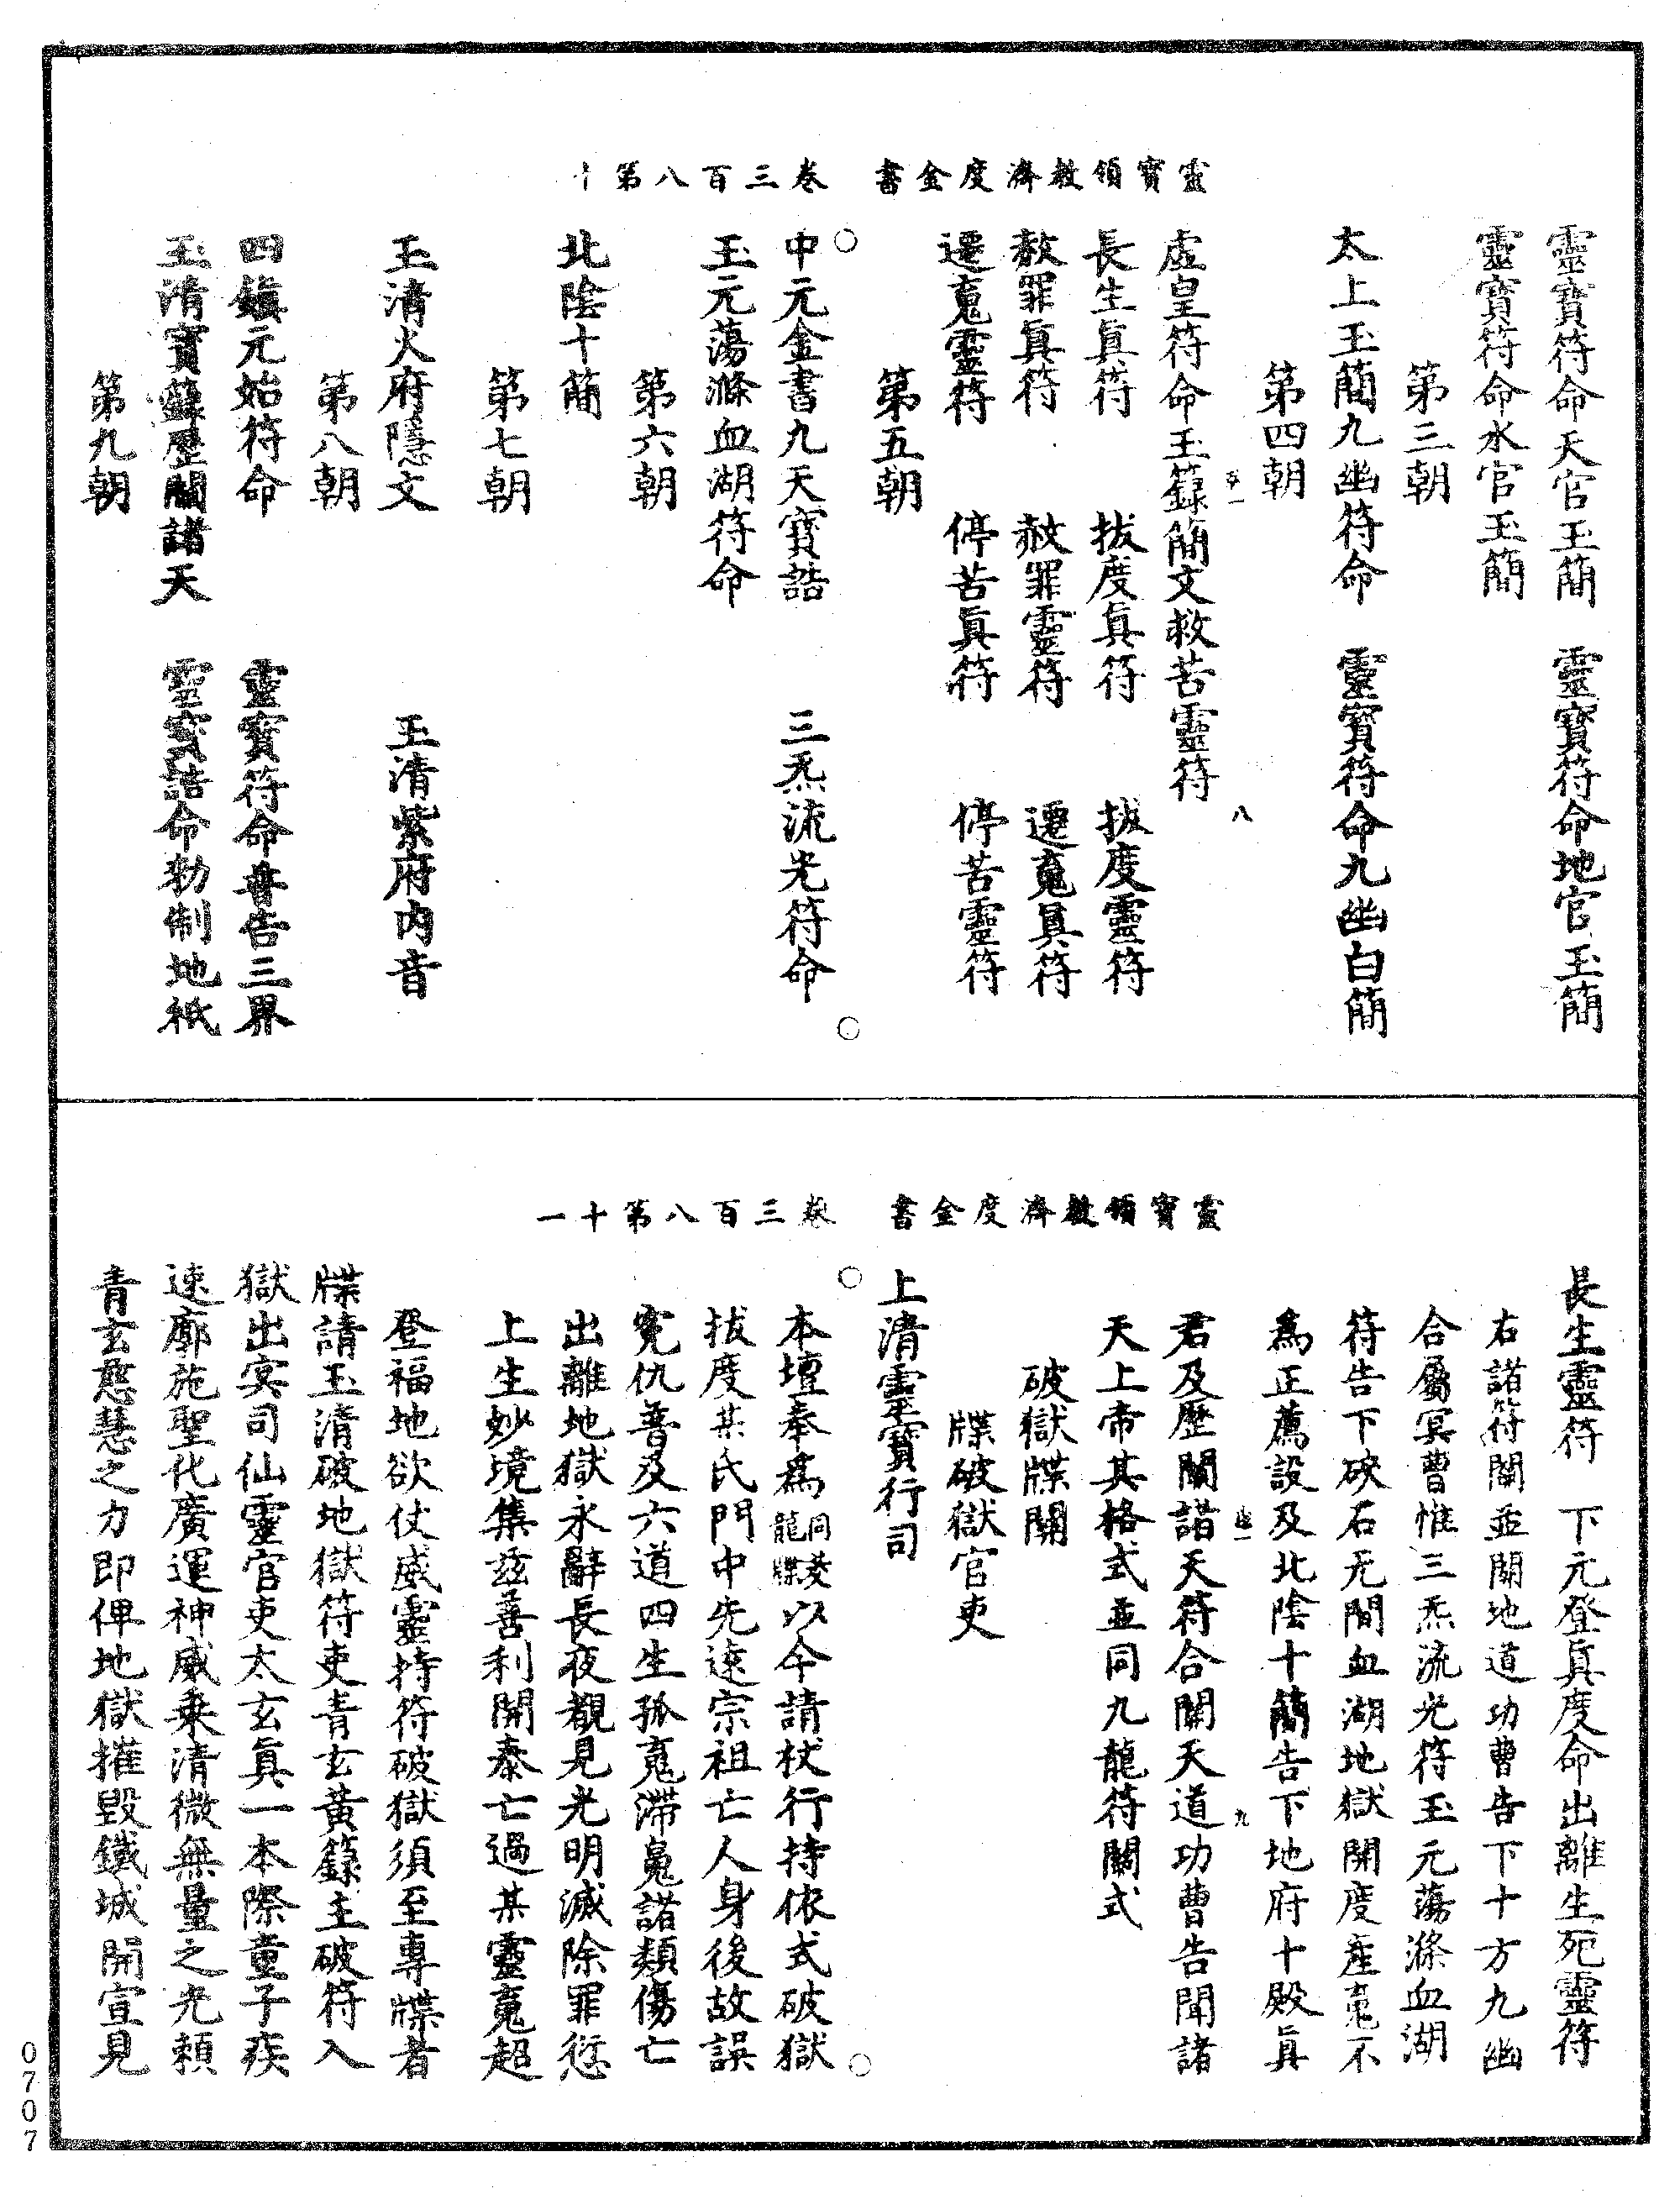 靈寳領教濟度金書　卷三百八第十
靈寳符命天官玉簡　靈寳符命地官玉簡
靈寳符命水官玉簡
第三朝
太上玉簡九幽符命　靈寳符命九幽白簡
第四朝
虛皇符命玉籙簡文救苦靈符
長生眞符　拔度眞符　拔度靈符
赦罪眞符　赦罪靈符　遷䰟眞符
遷䰟靈符　停苦眞符　停苦靈符
第五朝
中元金書九天寳誥　三炁流光符命
玉元蕩滌血湖符命
第六朝
北陰十簡
第七朝
玉清火府隱文　玉清紫府內音
第八朝
四鎮元始符命　靈寳符命普告三界
玉清寳籙歷關諸天　靈寳誥命勑制地祇
第九朝
八
靈寳領教濟度金書　卷三百八第十一
長生靈符　下元登眞度命出離生死靈符
右諸符關並關地道功曹告下十方九幽
合屬冥曹惟三炁流光符玉元蕩滌血湖
符告下硤石无間血湖地獄開度產䰟不
爲正薦設及北陰十簡告下地府十殿眞
君及歷關諸天符合關天道功曹告聞諸
天上帝其格式並同九龍符關式
九
破獄牒關
牒破獄官吏
上清靈寳行司
本壇奉爲同發龍牒以今請杖行持依式破獄
拔度某氏門中先遠宗祖亡人身後故誤
寃仇普及六道四生孤䰟滯魄諸類傷亡
出離地獄永辭長夜覩見光明滅除罪愆
上生妙境集兹善利開泰亡過某靈䰟超
登福地欲仗威靈持符破獄須至專牒者
牒請玉清破地獄符吏青玄黃籙主破符入
獄出㝠司仙靈官吏太玄眞一本際童子疾
速廓施聖化廣運神威乗清微無量之光頼
青玄慈慧之力即俾地獄摧毀鐵城開宣見
0707